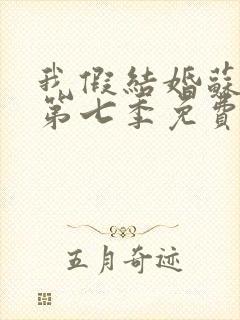 我假結婚蘇
第七季免費
五月奇迹